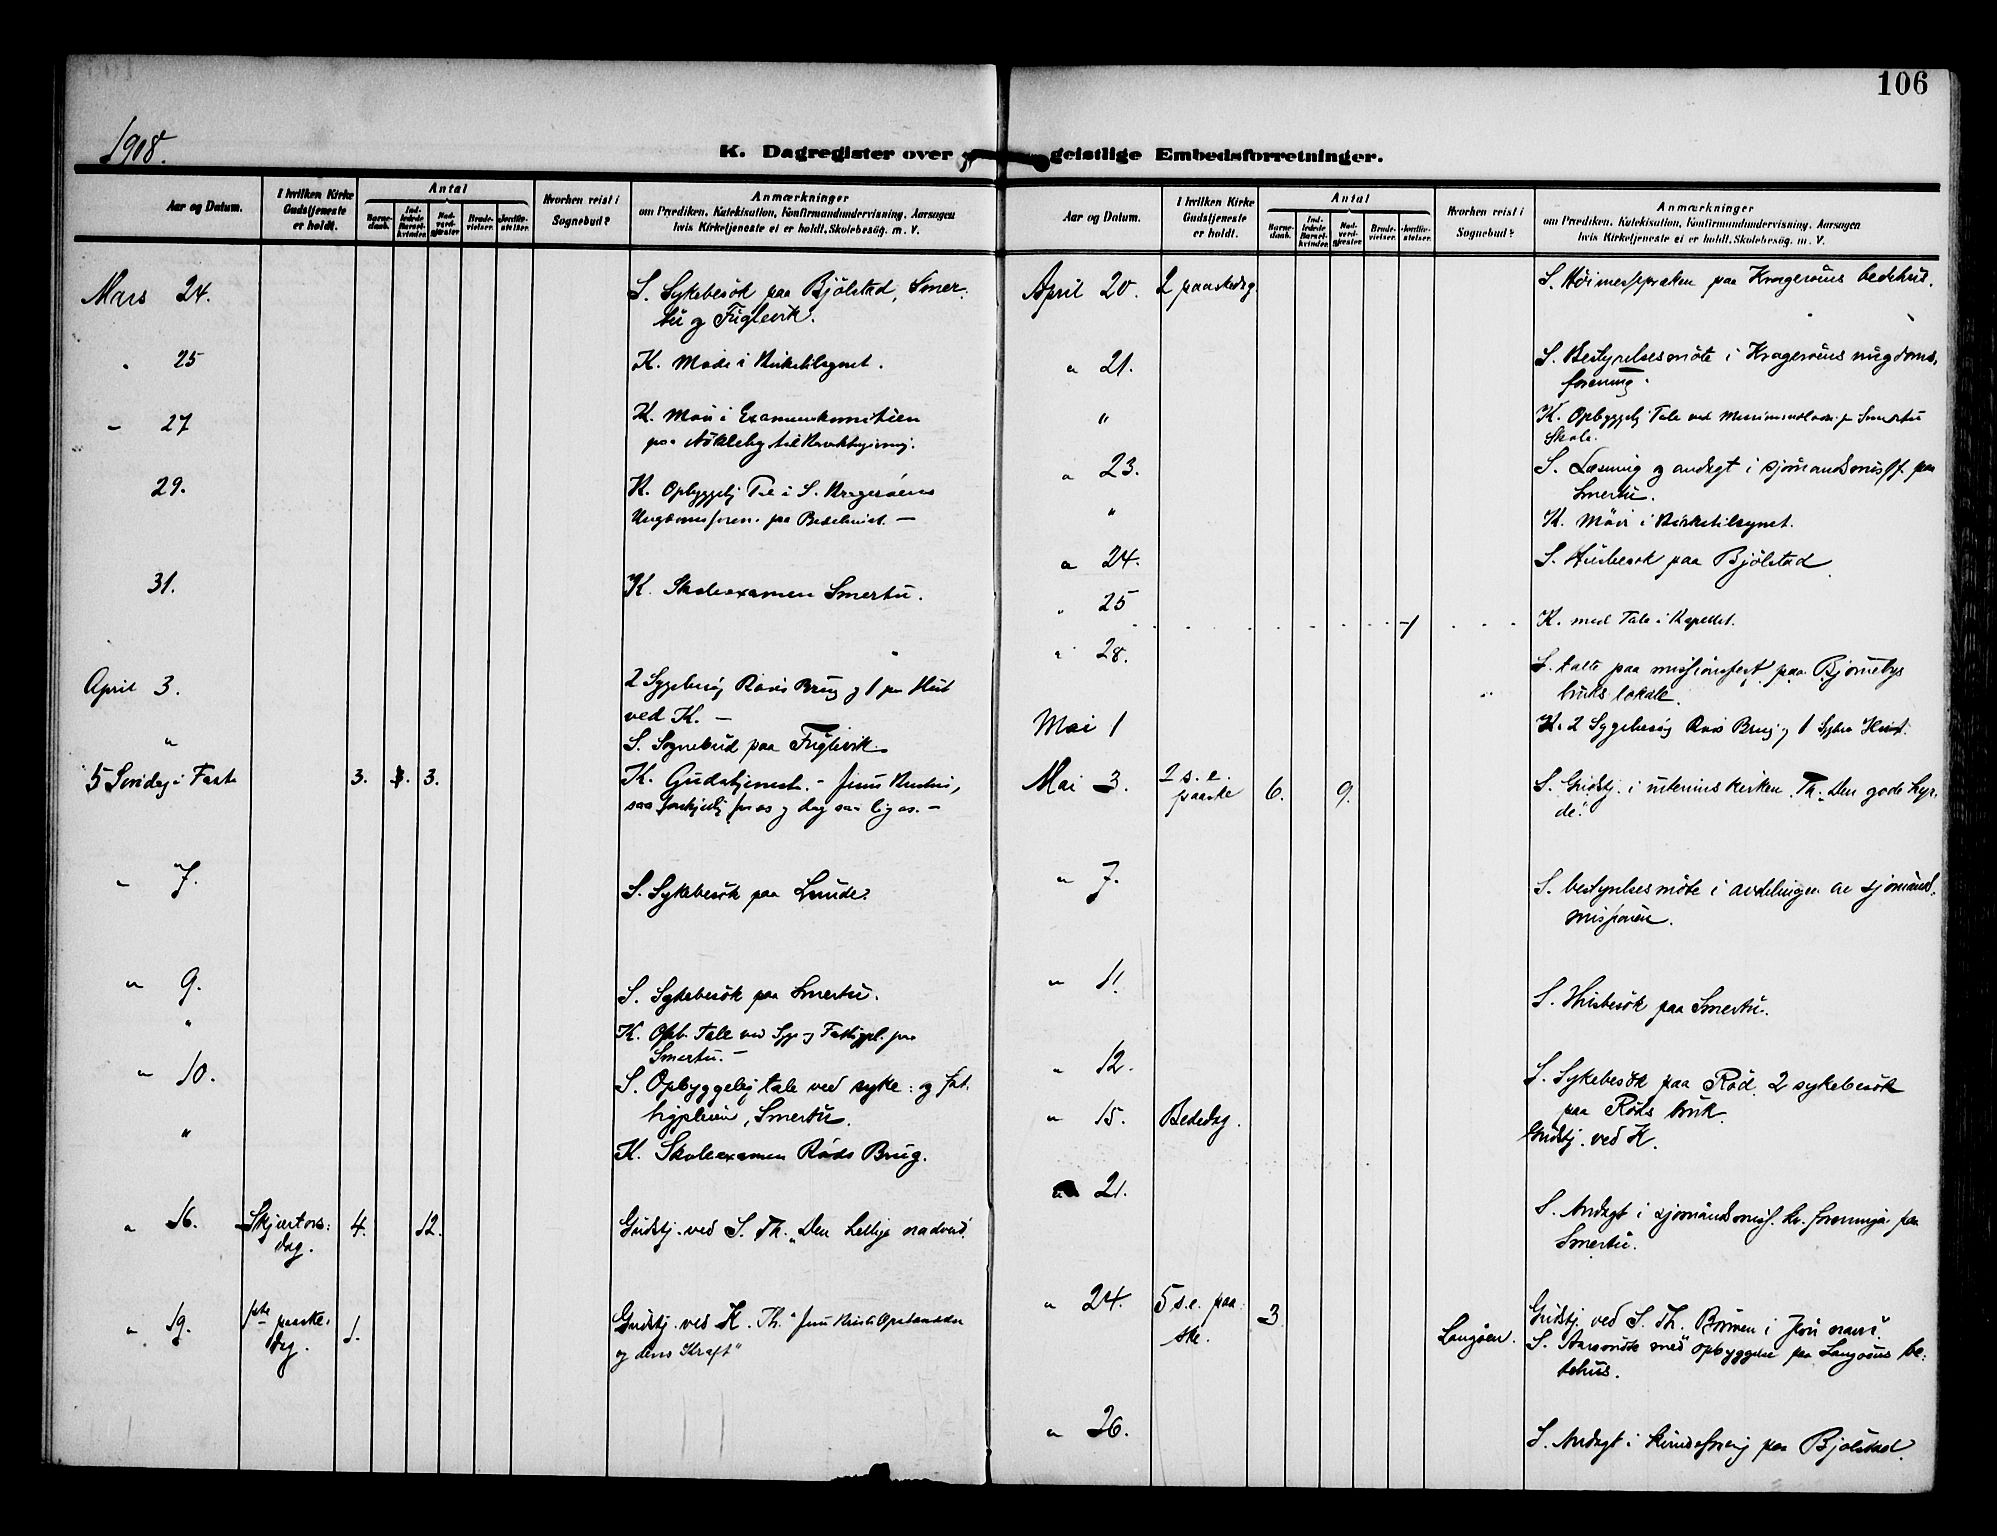 106
1908.
K. Dagregister over geistlige Embedsforretninger.
Aar og Datum.
I hvilken Kirke Gudstjeneste er holdt.
Antal
Barne-daab.
Ind-ledede Barsel-kvinder.
Nad-verd-gjæster
Brude-vielser.
Jordfæ-stelser.
Hvorhen reist i Sognebud?
Anmærkninger
om Prædiken, Katekisation, Konfirmandundervisning, Aarsagen
hvis Kirketjeneste ei er holdt, Skolebesög. m. V.
Mars 24. S. Sykebesök paa Bjölstad, Smer-
tu og Fuglevik.
" 25 K. Möde i Kirketilsynet.
" 27 K. Möde i Examenskomiteen
paa Nökleby
29. K. Opbyggelig Tale i S. Kragerøens
Ungdomsforen. paa Bedehuset. —
31. K. Skoleexamen Smertu.
April 3. 2 Sygebesøg Røds Brug og 1 paa
ved K. —
" S. Sognebud paa Fuglevik.
5 Søndag i Faste 3. 3. K. Gudstjeneste. — Jesus
— 
" 7. S. Sykebesök paa Lunde.
" 9. S. Sykebesök paa Smertu.
" K. Opb. Tale ved Syge og Fattigpl. paa
Smertu. —
" 10. S. Opbyggelig tale ved syke- og fat-
tigpleien, Smertu.
" K. Skoleexamen Røds Brug.
" 16. Skjærtors-
dag. 4. 12. Gudstj. ved S. Th. "Den hellige nadverd.
" 19. 1ste paaske-
dag. 1. Gudstj. ved K. Th. "Jesu Kristi Opstandelse
og dens Kraft"
Aar og Datum.
I hvilken Kirke Gudstjeneste er holdt.
Antal
Barne-daab.
Ind-ledede Barsel-kvinder.
Nad-verd-gjæster
Brude-vielser.
Jordfæ-stelser.
Hvorhen reist i Sognebud?
Anmærkninger
om Prædiken, Katekisation, Konfirmandundervisning, Aarsagen
hvis Kirketjeneste ei er holdt, Skolebesög. m. V.
April 20. 2 paaskedag. S. Höimesspræken paa Kragerøens bedehus.
" 21. S. Bestyrelsesmöte i Kragerøens ungdoms-
forening.
" K. Opbyggelig Tale ved paa Smertu
Skole.
" 23. S. Læsning og andagt i sjömandsmissf. paa
Smertu.
" K. Möde i Kirketilsynet.
" 24. S. Husbesök paa Bjölstad
" 25 1 K. med Tale i Kapellet.
" 28. S. talte paa missionsfest paa Bjørnebys
bruks lokale.
Mai 1 K. 2 Sygebesøg Røds Brug og 1
Mai 3. 2 s. e.
paaske 6. 9. S. Gudstj. i interimskirken. Th. "Den gode hyr-
de".
" 7. S. bestyrelsesmöte i avdelingen av sjömands-
missionen.
" 11. S. Husbesök paa Smertu.
" 12. S. Sykebesök paa Röd. 2 sykebesök
paa Röds bruk.
" 15. Bededag. Gudstj. ved K.
" 21. S. Andagt i sjömandsmis. kv. foreninger paa
Smertu.
" 24. 5 s. e. paa-
ske. 3 Langøen. Gudstj. ved S. Th. Bönnen i Jesu navn.
S. Aarsmöte med opbyggelse paa Langøens be-
dehus.
" 26. S. Andagt i kvindeforeng paa Bjölstad.